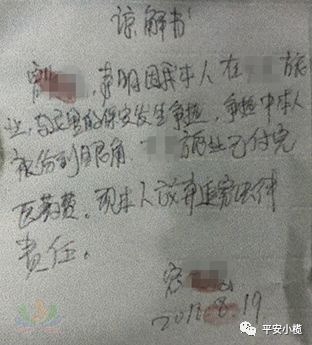 谅解书
事明因我本人在 旅
业,与这里的保安发生争执,争执中本人
被伤到眼角. 旅业已付完
医药费,现本人放弃追究法律
责任。
2017.8.19
平安小榄